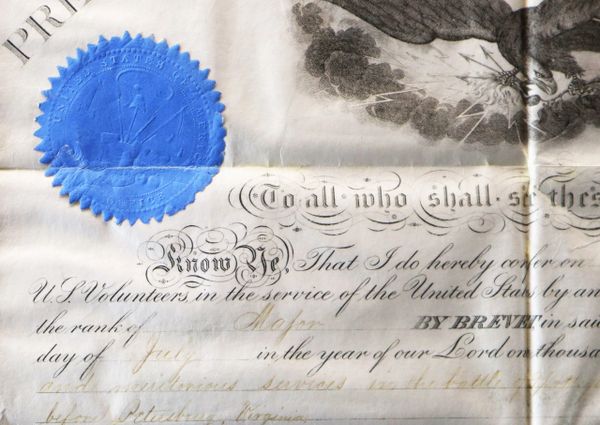 PRE
UNITED STATES OF
OFFICE
To all who shall see thes
Know Ye, That I do hereby confer on
U.S. Volunteers, in the service of the United States by an
the rank of Major BY BREVET in said
day of July in the year of our Lord on thousa
and meritorious services in the battle of
before Petersburg, Virginia,